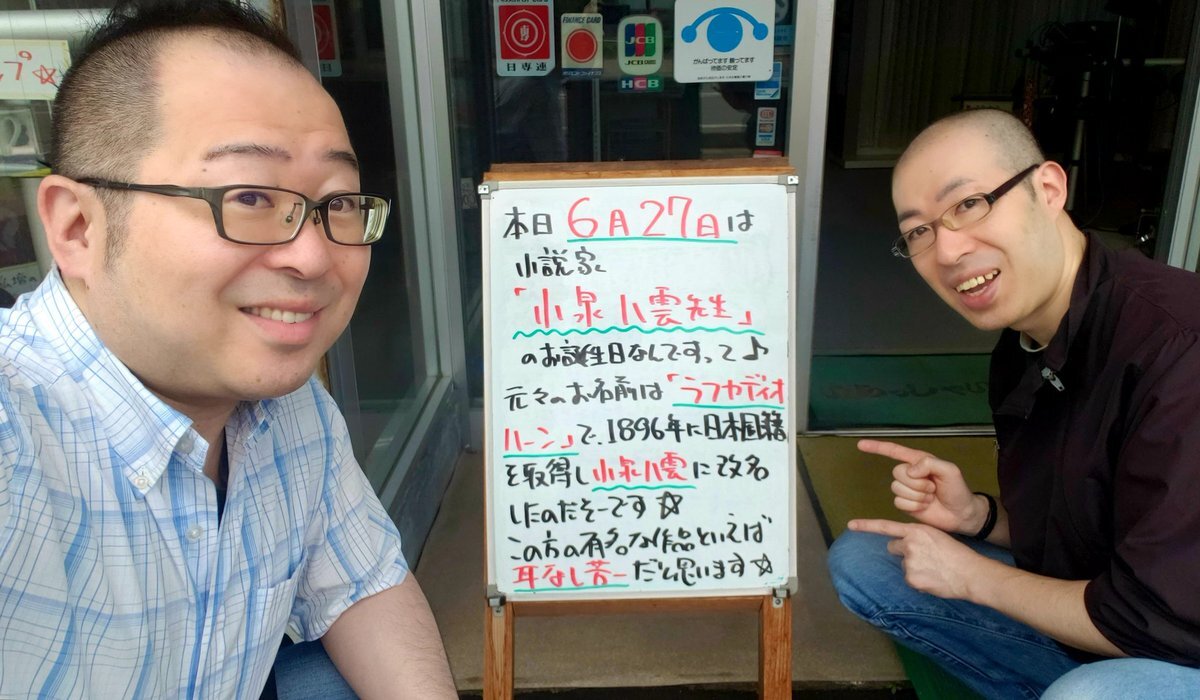 プ☆
日専連
FINANCE CARD
JCB
JCB
HCB
がんばってます 願ってます
地価の安定
本日6月27日は
小説家
「小泉八雲先生」
のお誕生日なんですって♪
元々のお名前は「ラフカディオ
ハーン」で、1896年に日本国籍
を取得し小泉八雲に改名
したのだそーです☆
この方の有名な作品といえば
耳なし芳一だと思います☆